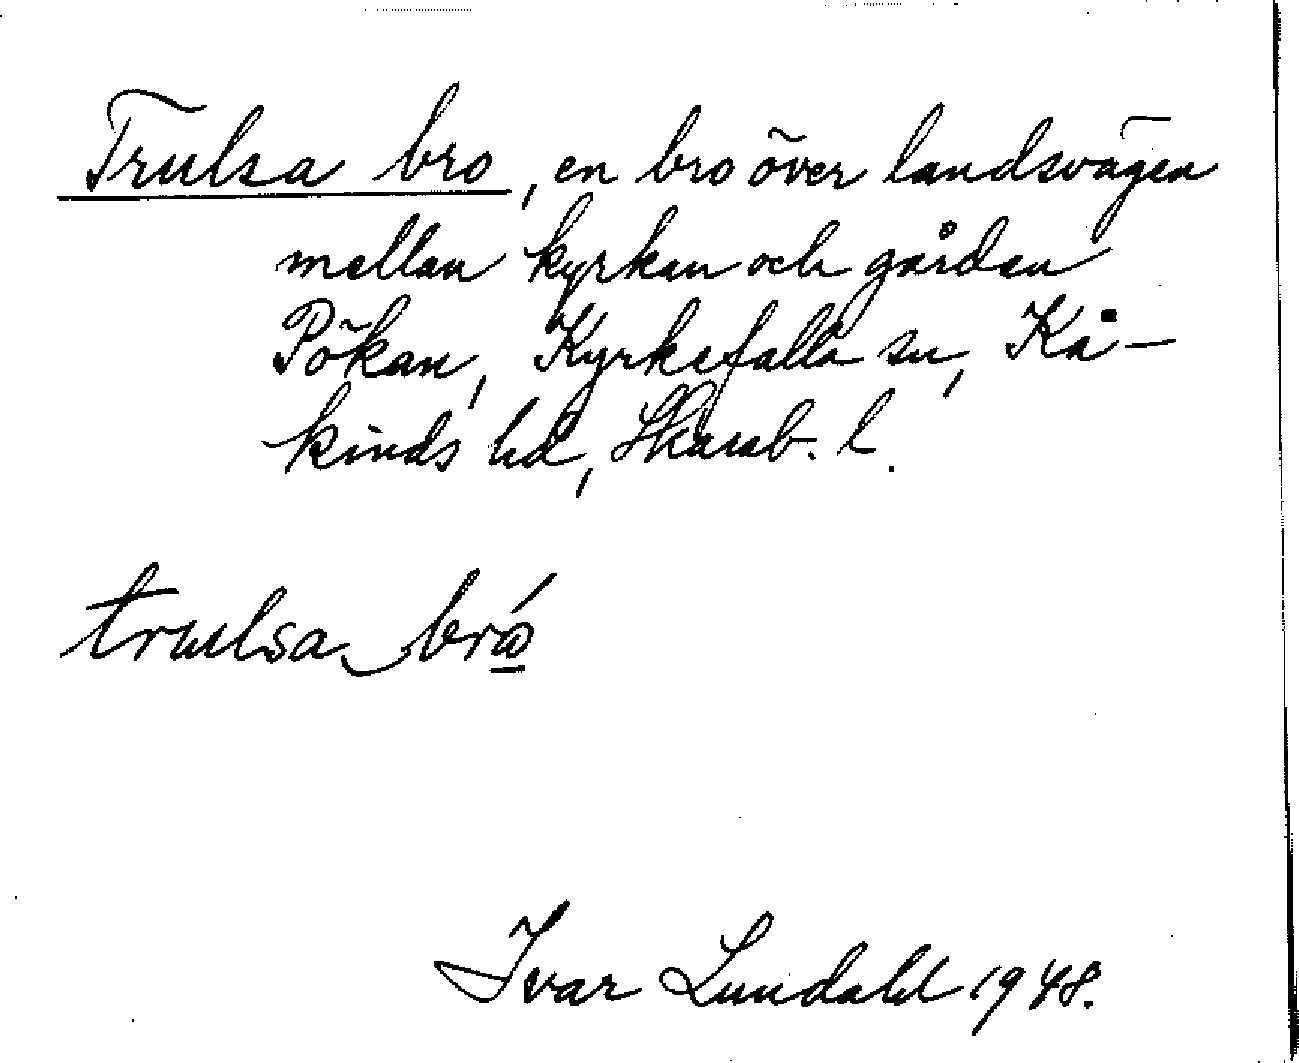 Trulsa bro, en bro över landsvägen
mellan kyrkan och gården
Pökan, Kyrkefalla sn, Kå-
kinds hd, Skarab. l.
trulsa brώ
Ivar Lundahl 1948.